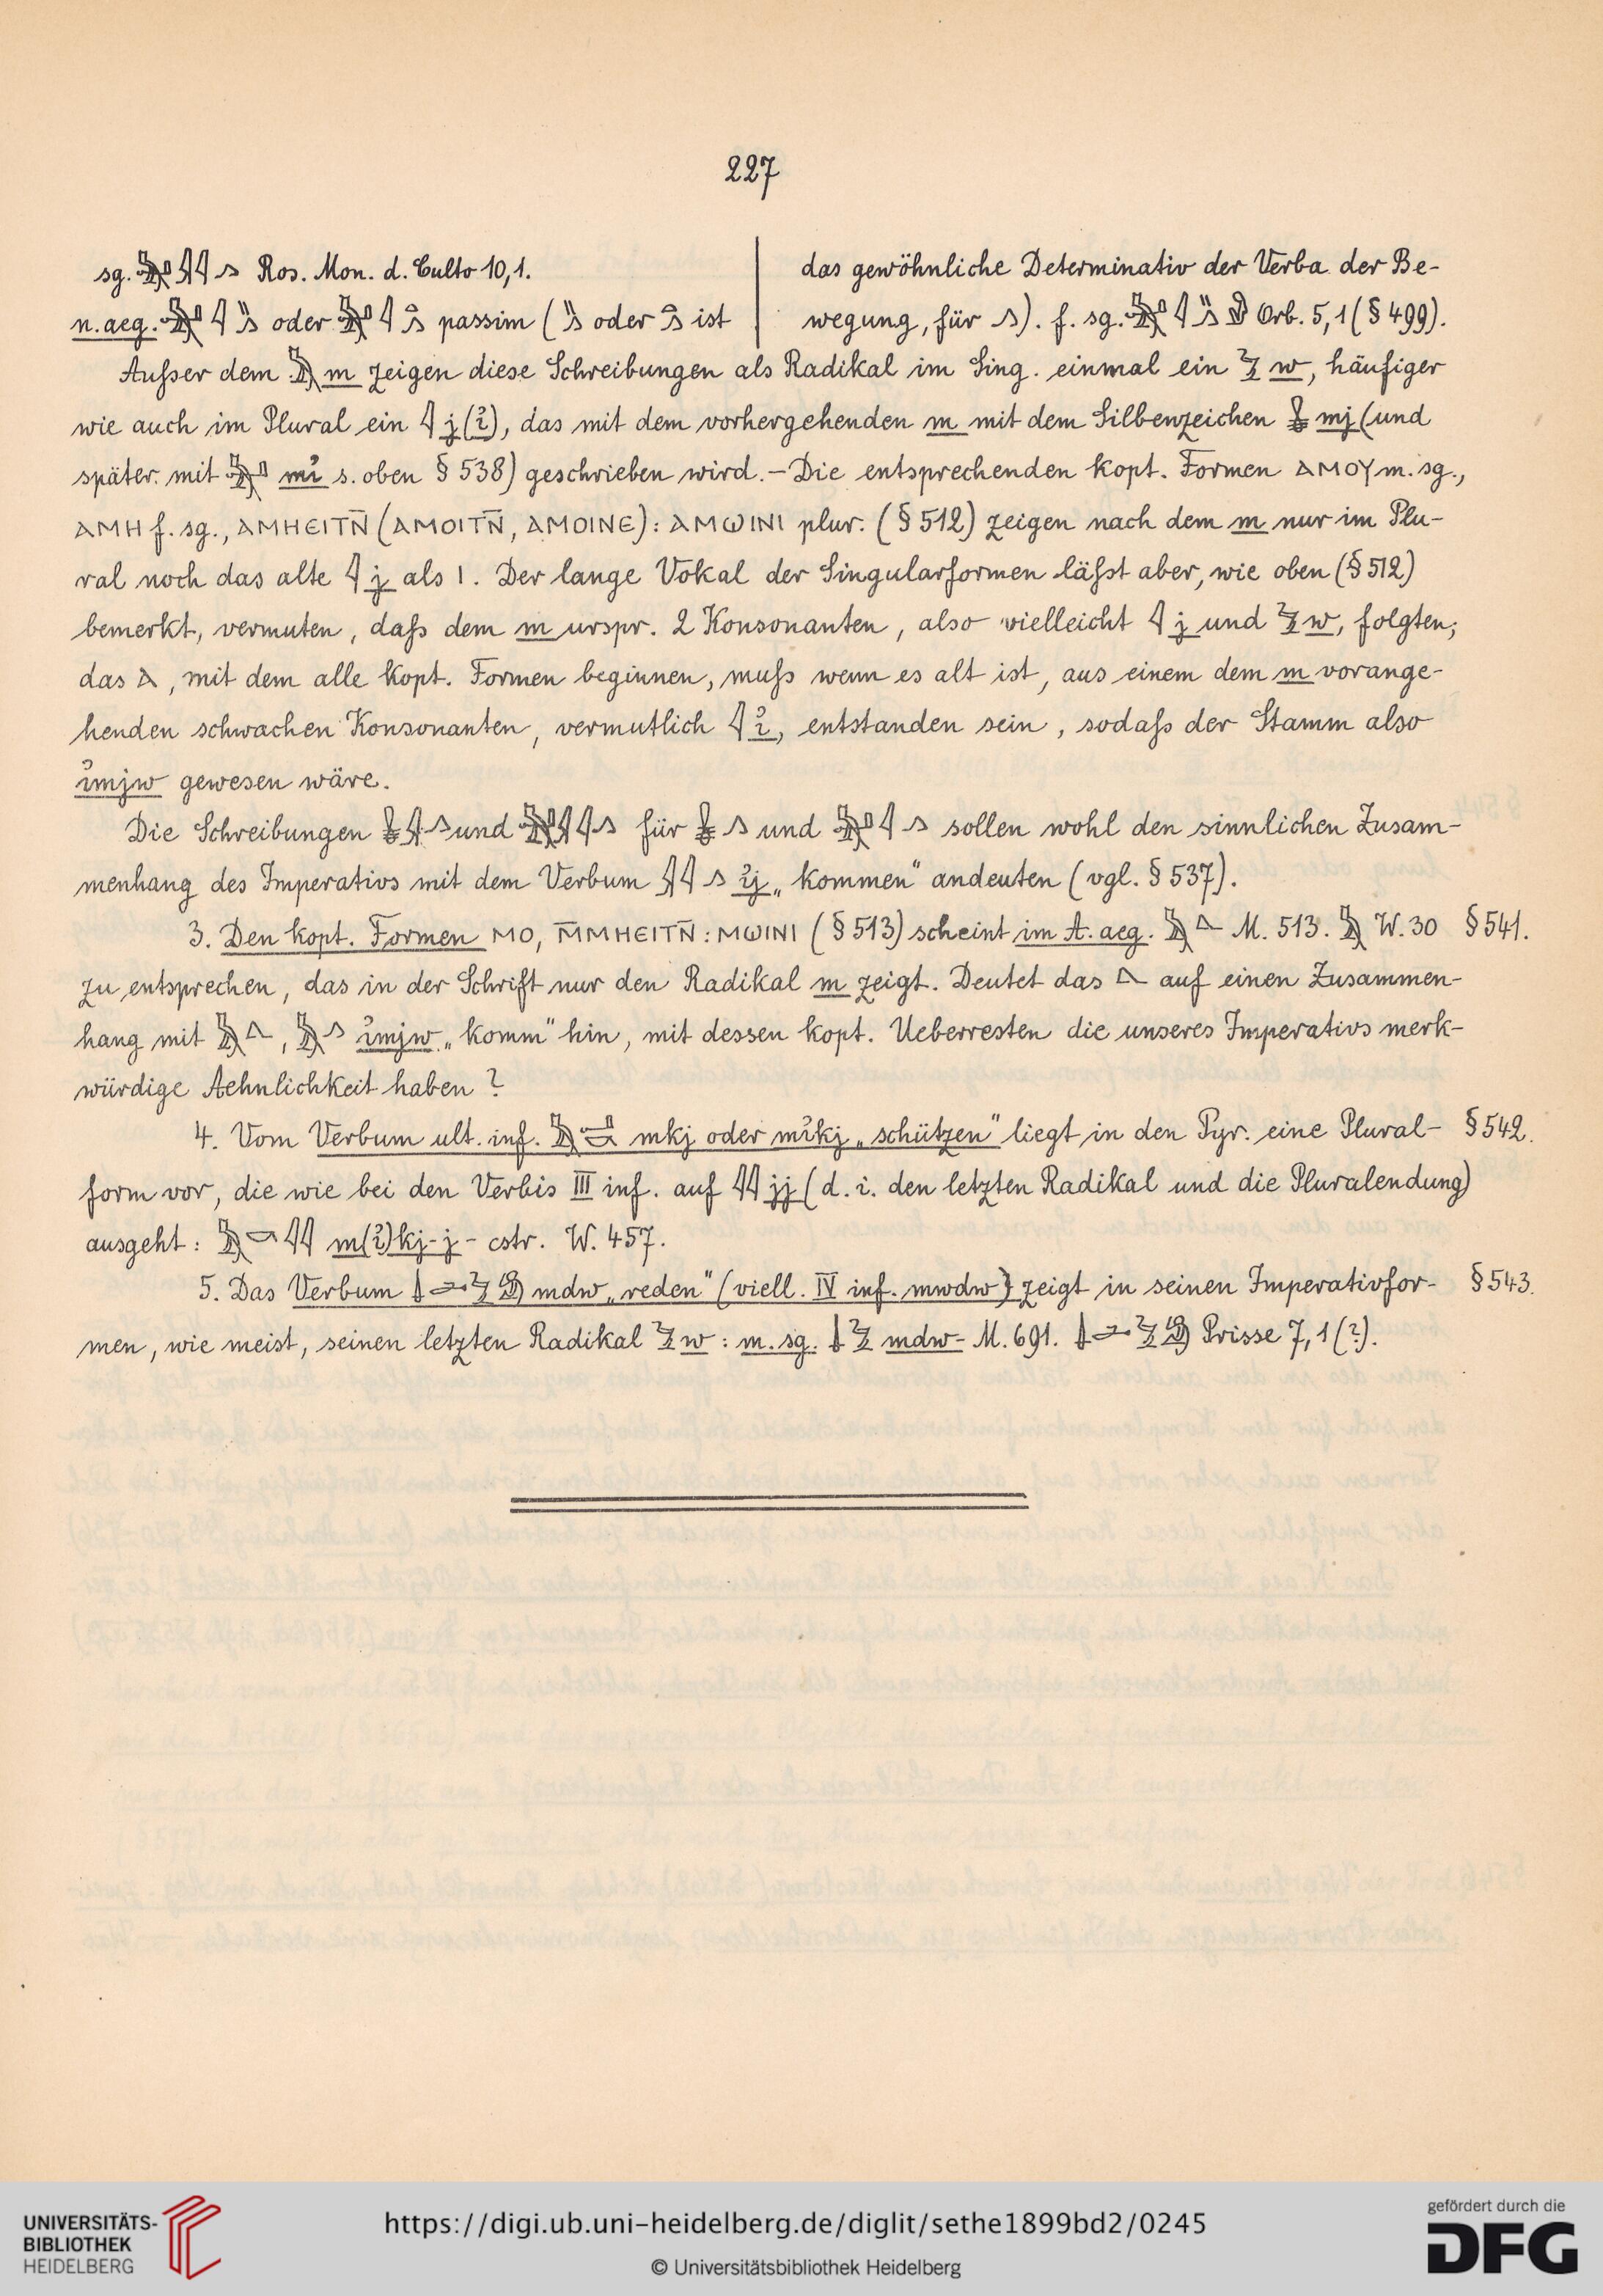 227
sg. 𓅓𓂝𓏙𓇋𓇋𓂻 Ros. Mon. d. Culto 10,1.
n. aeg. oder passim ( oder ist
das gewöhnliche Determinativ der Verba der Be-
wegung, für 𓂻). f. sg. Orb. 5,1 (§ 499).
Außer dem 𓅓 m zeigen diese Schreibungen als Radikal im Sing. einmal ein 𓅱 w, häufiger
wie auch im Plural ein 𓇋 j (ꞽ), das mit dem vorhergehenden m mit dem Silbenzeichen mj (und
später mit mꞽ s. oben § 538) geschrieben wird. – Die entsprechenden kopt. Formen ⲁⲙⲟⲩ m. sg.,
ⲁⲙⲏ f. sg., ⲁⲙⲏⲉⲓⲧⲛ̄ (ⲁⲙⲟⲓⲧⲛ̄, ⲁⲙⲟⲓⲛⲉ): ⲁⲙⲱⲓⲛⲓ plur. (§ 512) zeigen nach dem m nur im Plu-
ral noch das alte 𓇋 j als ⲓ. Der lange Vokal der Singularformen läßt aber, wie oben (§ 512)
bemerkt, vermuten, daß dem m urspr. 2 Konsonanten, also vielleicht 𓇋 j und 𓅱 w, folgten;
das ⲁ, mit dem alle kopt. Formen beginnen, muß wenn es alt ist, aus einem dem m vorange-
henden schwachen Konsonanten, vermutlich 𓇋 ꞽ, entstanden sein, sodaß der Stamm also
ꞽmjw gewesen wäre.
Die Schreibungen und für und sollen wohl den sinnlichen Zusam-
menhang des Imperativs mit dem Verbum 𓇋𓇋𓂻 ꞽj „kommen“ andeuten (vgl. § 537).
3. Den kopt. Formen ⲙⲟ, ⲙ̄ⲙⲏⲉⲓⲧⲛ̄: ⲙⲱⲓⲛⲓ (§ 513) scheint im A. aeg. 𓅓𓈎 M. 513. 𓅓 W. 30 § 541.
zu entsprechen, das in der Schrift nur den Radikal m zeigt. Deutet das 𓈎 auf einen Zusammen-
hang mit 𓅓𓈎, 𓅓𓂻 ꞽmjw „komm“ hin, mit dessen kopt. Ueberresten die unseres Imperativs merk-
würdige Aehnlichkeit haben?
4. Vom Verbum ult. inf. mkj oder mꞽkj „schützen“ liegt in den Pyr. eine Plural- § 542.
form vor, die wie bei den Verbis III inf. auf 𓇋𓇋 jj (d. i. den letzten Radikal und die Pluralendung)
ausgeht: 𓅓𓎡𓇋𓇋 m(ꞽ)kj-j- cstr. W. 457.
5. Das Verbum 𓌃𓂧𓅱𓀁 mdw „reden“ (viell. IV inf. mwdw) zeigt in seinen Imperativfor- § 543.
men, wie meist, seinen letzten Radikal 𓅱 w: m. sg. 𓌃𓅱 mdw- M. 691. 𓌃𓂧𓅱𓀁 Prisse 7,1 (?).
UNIVERSITÄTS-
BIBLIOTHEK
HEIDELBERG
https://digi.ub.uni-heidelberg.de/diglit/sethe1899bd2/0245
© Universitätsbibliothek Heidelberg
gefördert durch die
DFG